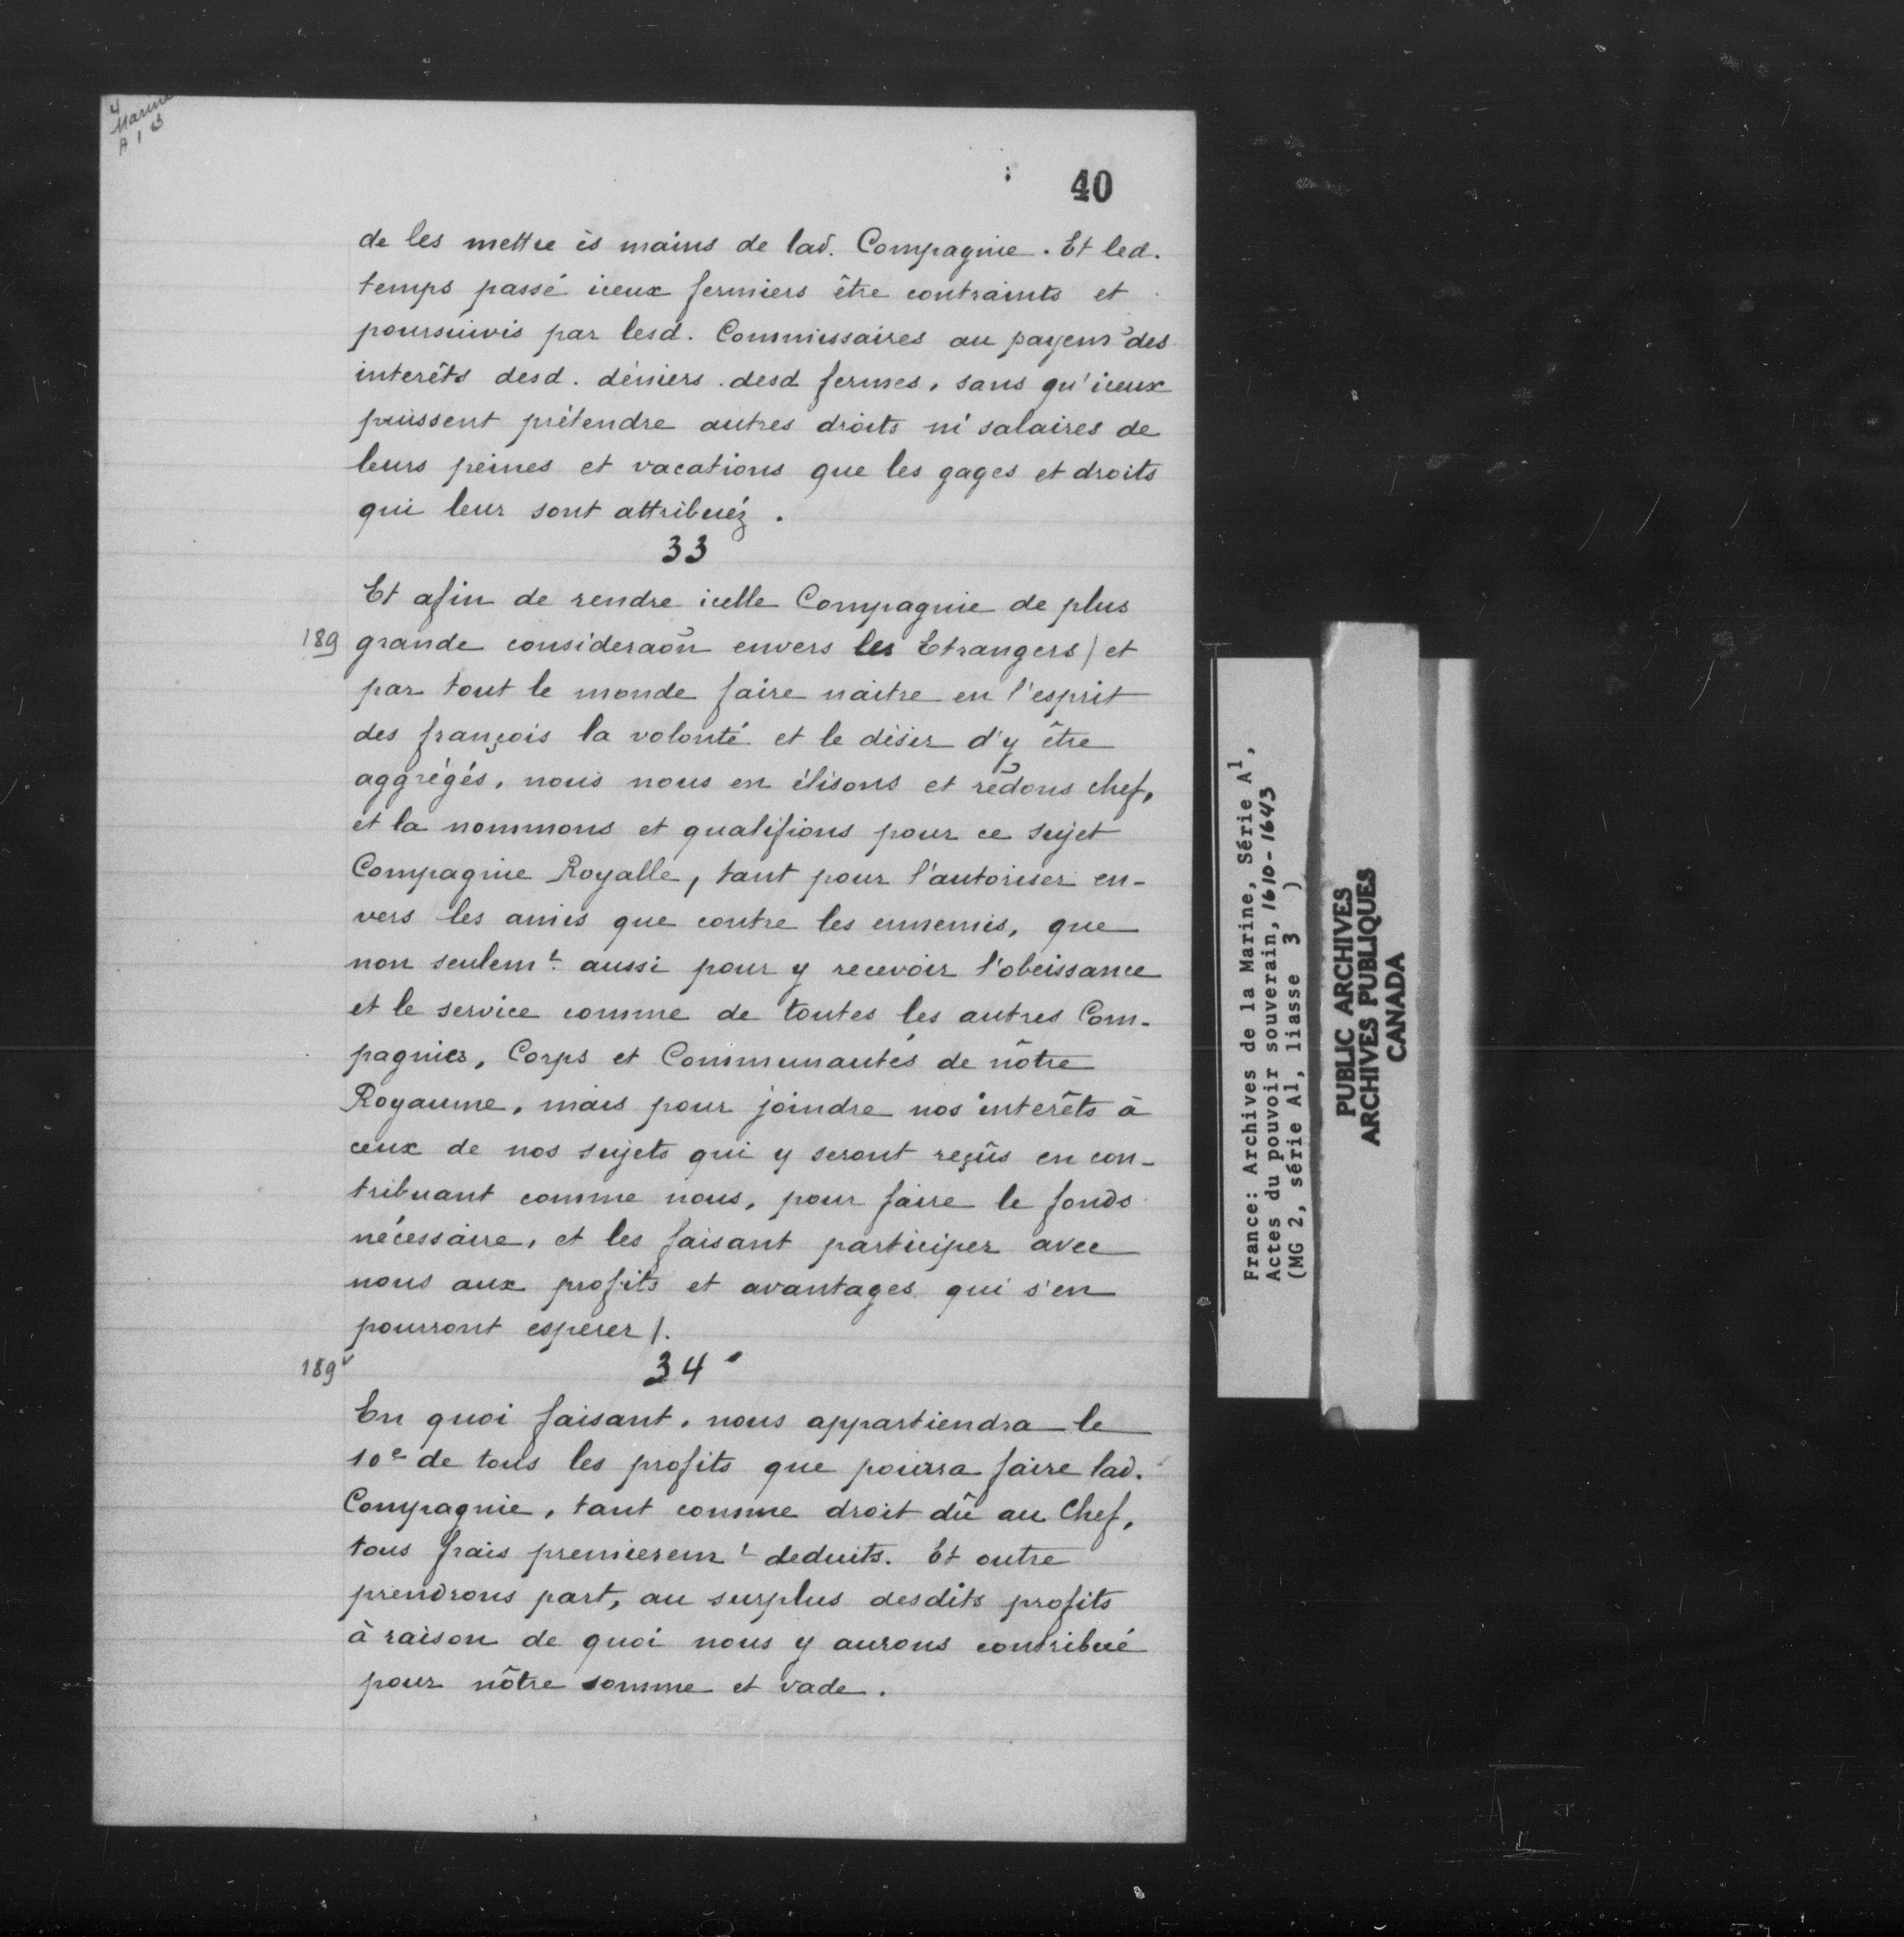 4
Marine
A 1 3
40
de les mettre ès mains de lad. Compagnie. Et led.
temps passé iceux fermiers être contraints et
poursuivis par lesd. Commissaires au payem̃ des
interêts desd. déniers desd fermes, sans qu'iceux
puissent prétendre autres droits ni salaires de
leurs peines et vacations que les gages et droits
qui leur sont attribuéz.
33
Et afin de rendre icelle Compagnie de plus
189 grande consideraõn envers les Etrangers / et
par tout le monde faire naitre en l'esprit
des françois la volonté et le désir d'y être
aggrégés, nous nous en élisons et rẽdons chef,
et la nommons et qualifions pour ce sujet
Compagnie Royalle, tant pour l'autoriser en-
vers les amis que contre les ennemis, que
non seulemt. aussi pour y recevoir l'obeissance
et le service comme de toutes les autres Com-
pagnies, Corps et Communautés de nôtre
Royaume, mais pour joindre nos interêts à
ceux de nos sujets qui y seront reçûs en con-
tribuant comme nous, pour faire le fonds
nécessaire, et les faisant participer avec
nous aux profits et avantages qui s'en
pourront esperer /.
189v 34
En quoi faisant, nous appartiendra le
10e de tous les profits que pourra faire lad.
Compagnie, tant comme droit dû au Chef,
tous frais premieremt deduits. Et outre
prendrons part, au surplus desdits profits
à raison de quoi nous y aurons contribué
pour nôtre somme et vade.
France: Archives de la Marine, Série A1,
Actes du pouvoir souverain, 1610-1643
(MG 2, série A1, liasse 3 )
PUBLIC ARCHIVES
ARCHIVES PUBLIQUES
CANADA